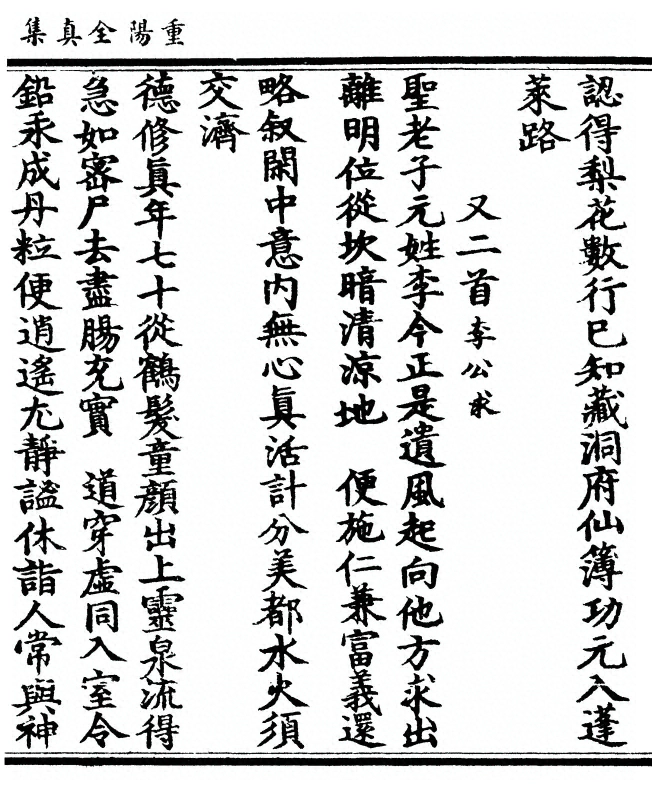 重陽全真集
認得梨花數行巳知藏洞府仙簿功元入蓬
萊路
又二首李公求
聖老子元姓李今正是遺風起向他方求出
離明位從坎暗清涼地　便施仁兼富義還
略叙閑中意内無心真活計分美都水火須
交濟
德修真年七十從鶴髮童顏出上靈泉流得
急如宻尸去盡腸充實　道穿虛同入室令
鉛汞成丹粒便逍遙尤靜謐休詣人常與神